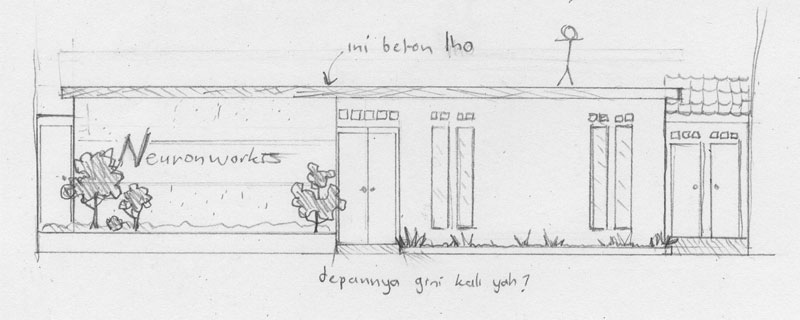 ini beton lho
Neuronworks
depannya gini kali yah?